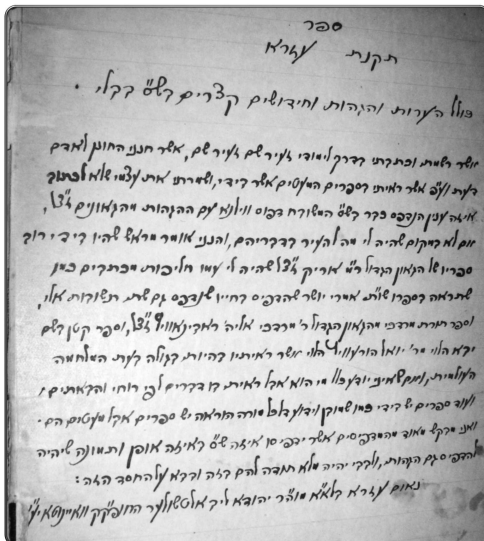 ספר
תקנת עזרא
כולל הערות והגהות וחידושים קצרים בש"ס בבלי .
אשר רשמתי וכתבתי בדרך לימודי זעיר שם זעיר שם, אשר חנני החונן לאדם
דעת ועפ"י אשר ראיתי בספרים המעטים אשר בידי, ושמרתי את עצמי שלא לכתוב
איזה ענין הנדפס כבר בש"ס המשובח דפוס ווילנא עם ההגהות מהגאונים ז"צל,
אם לא במקום שהיה לי מה להעיר בדבריהם, והנני אומר מראש שהיו בידי רוב
ספריו של הגאון הגדול ר"מ אריק ז"צל שהיה לי עמו חליפות מכתבים כמו
שתראה בספרו שו"ת אמרי יושר שהדפיס בחייו שנדפס גם שתי תשובות אלי,
וספר תורת מרדכי מהגאון הגדול ר' מרדכי אליה' ראבינאוויץ ז"צל, וספר קטן בשם
יבא הלוי מר' יואל הורעוויץ הלוי אשר ראיתיו בהיותי בגולה בעת המלחמה
העולמית, ומשם שאיני יודע כלל מי הוא אבל ראיתי בו דברים לפי רוחי והבאתים ;
ועוד ספרים יש בידי כמו שמובן וידוע דלכל מורה הוראה יש ספרים אבל מעטים הם .
ואני מבקש מאוד מהמדפיסים אשר ידפיסו איזה ש"ס באיזה אופן ותמונה שיהיה
להדפיס גם הגהותי, ולבי יהיה מלא תודה להם בזה ובבא על החסד הזה :
נאום עזרא בלא"א מוה"ר יהודא ליב אלטשולער החופ"ק וויינוטא יע"א